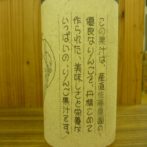 この果汁は、産直佐藤農園の、
優良なりんごを、丹精こめて
作られた、美味しさと栄養が
いっぱいの、りんご果汁です。